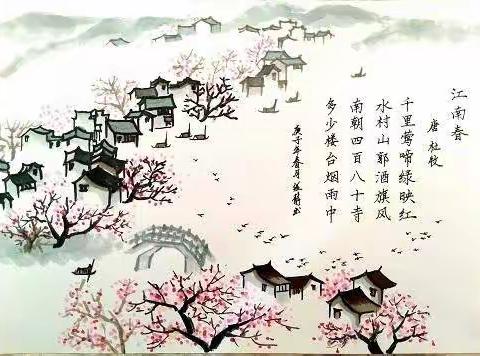 江南春
唐 杜牧
千里莺啼绿映红
水村山郭酒旗风
南朝四百八十寺
多少楼台烟雨中
庚子年春月